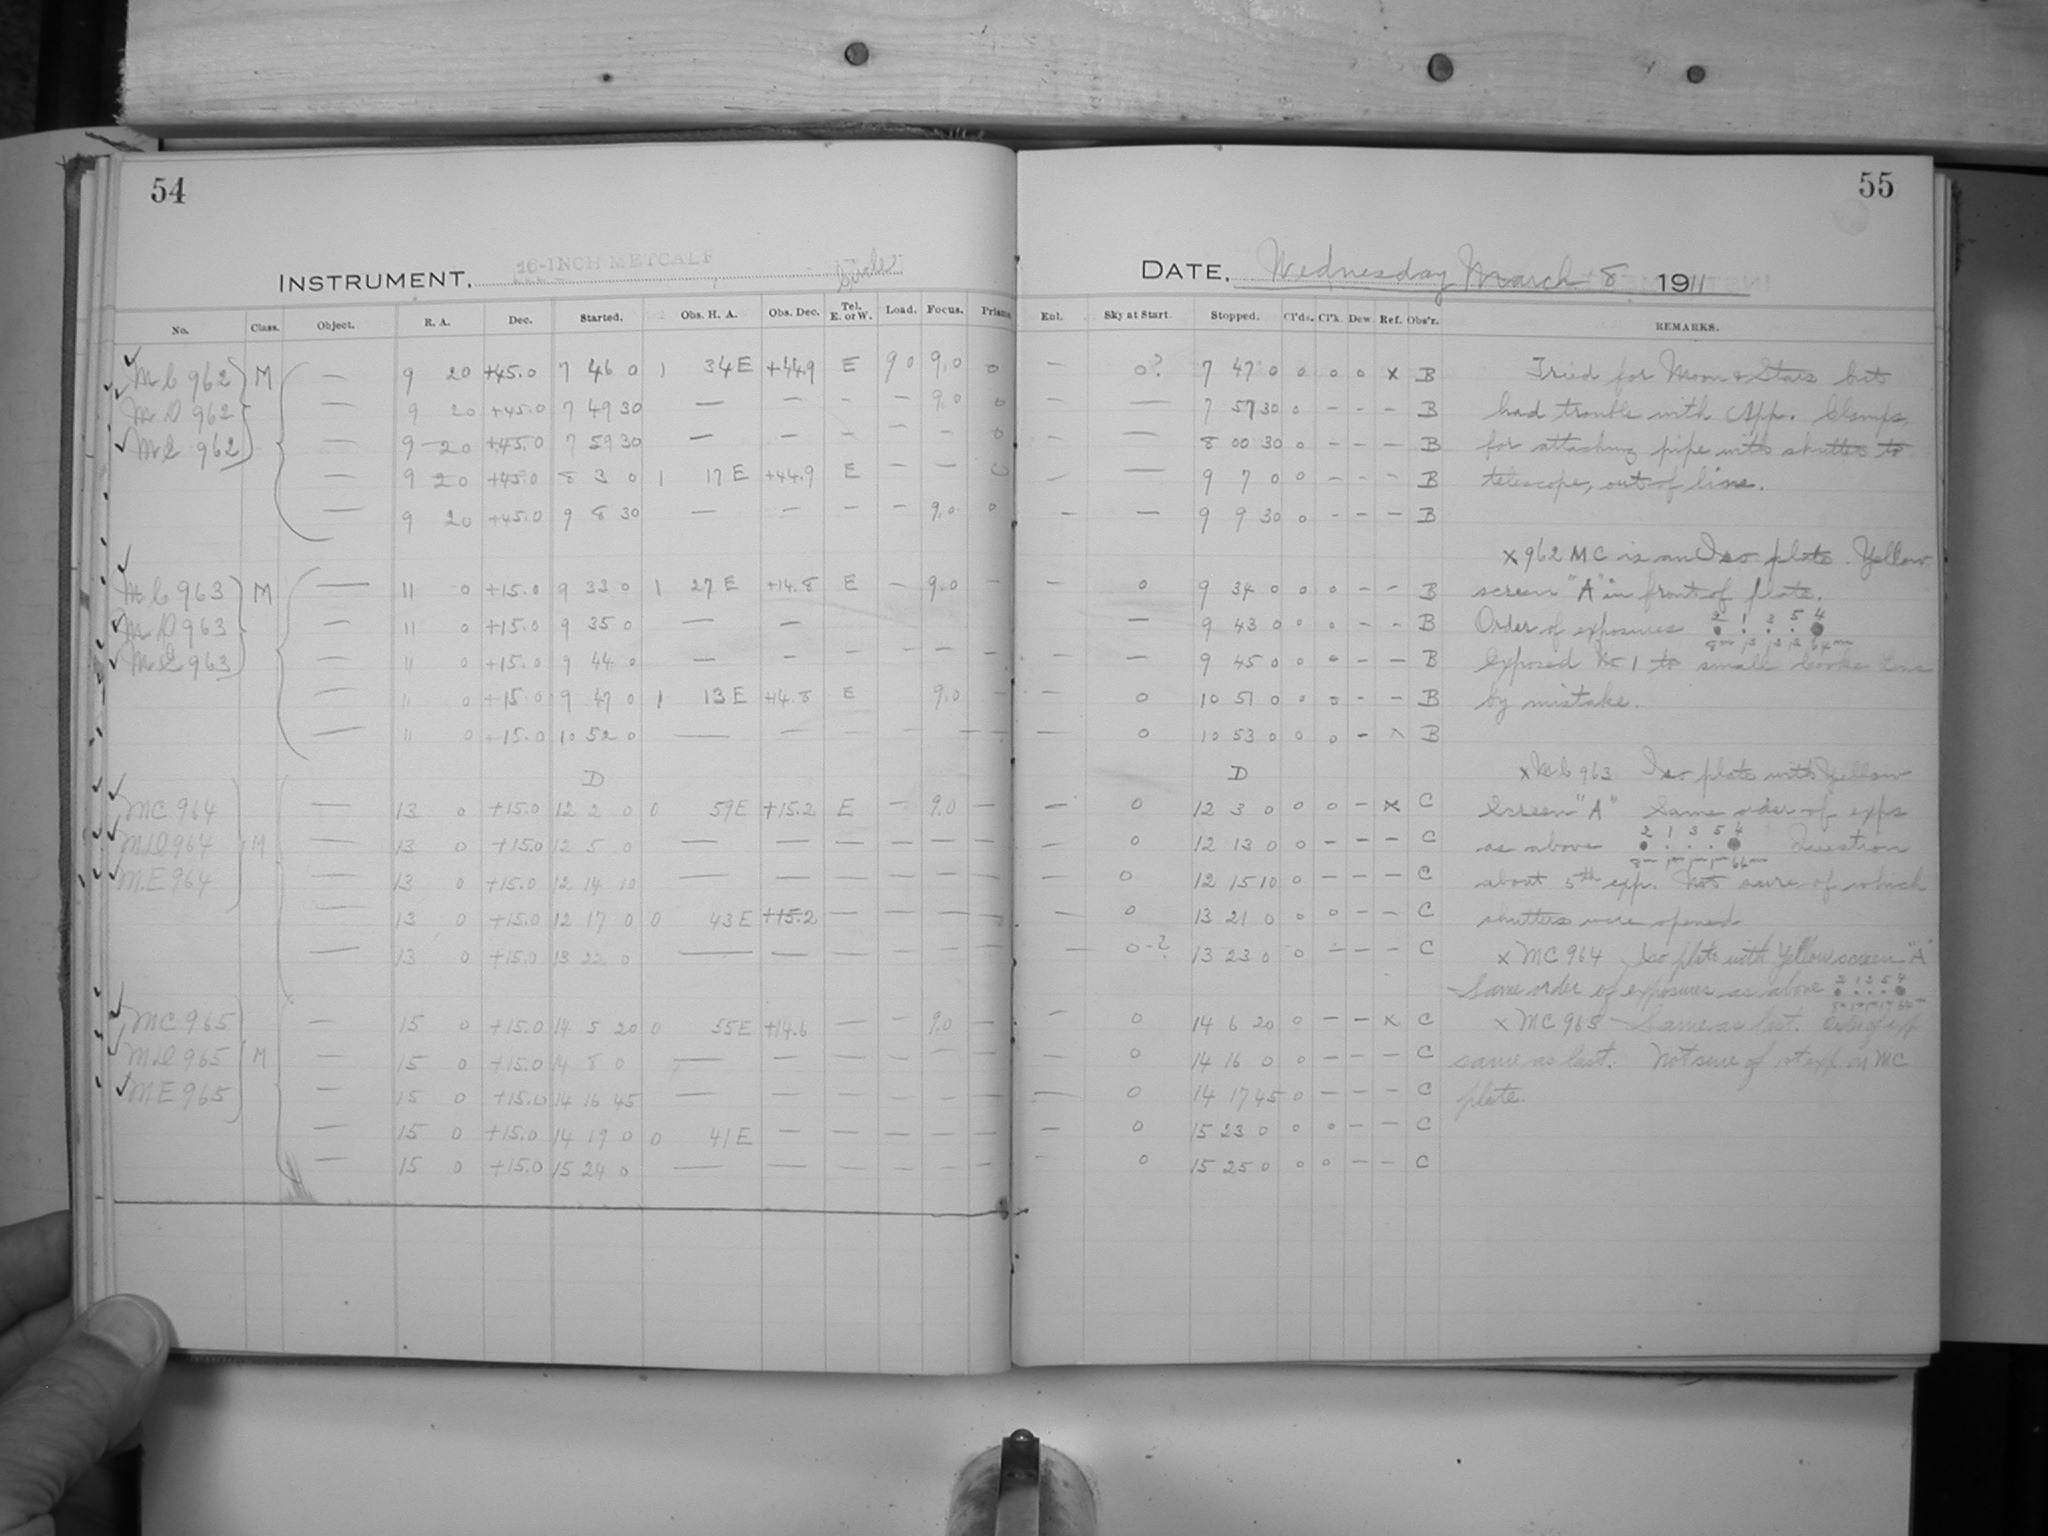 54
INSTRUMENT. 16-INCH METCALF Circle
No. Class. Object. R. A. Dec. Started. Obs. H. A. Obs. Dec. Tel. E. or W. Load. Focus. Prisms
MC 962 M — 9 20 +45.0 7 46 0 1 34 E +44.9 E 90 9.0 0
MD 962 — 9 20 +45.0 7 49 30 — — — — 9.0 0
ME 962 — 9 20 +45.0 7 59 30 — — — — — 0
— 9 20 +45.0 8 3 0 1 17 E +44.9 E — — 0
— 9 20 +45.0 9 8 30 — — — — 9.0 0
MC 963 M — 11 0 +15.0 9 33 0 1 27 E +14.8 E — 9.0 —
MD 963 — 11 0 +15.0 9 35 0 — —
ME 963 — 11 0 +15.0 9 44 0 — — — — — —
— 11 0 +15.0 9 47 0 1 13 E +14.8 E 9.0 —
— 11 0 +15.0 10 52 0 — — — — — —
D
MC 964 — 13 0 +15.0 12 2 0 0 59 E +15.2 E — 9.0 —
MD 964 M — 13 0 +15.0 12 5 0 — — — — — —
M.E 964 — 13 0 +15.0 12 14 10 — — — — — —
— 13 0 +15.0 12 17 0 0 43 E +15.2 — — — —
— 13 0 +15.0 13 22 0 — — — — — —
MC 965 — 15 0 +15.0 14 5 20 0 55 E +14.6 — — 9.0 —
MD 965 M — 15 0 +15.0 14 8 0 — — — — — —
ME 965 — 15 0 +15.0 14 16 45 — — — — — —
— 15 0 +15.0 14 19 0 0 41 E — — — — —
— 15 0 +15.0 15 24 0 — — — — — —
55
DATE. Wednesday March 8 1911
Enl. Sky at Start. Stopped. Cl'ds. Cl'k. Dew. Ref. Obs'r. REMARKS.
— 0? 7 47 0 0 0 0 x B Tried for Moon & Stars but
— — 7 57 30 0 — — — B had trouble with App. Clamps,
— — 8 00 30 0 — — — B for attaching pipe with shutter to
— — 9 7 0 0 — — — B telescope, out of line.
— — 9 9 30 0 — — — B
x 962 MC is an Iso plate. Yellow
— 0 9 34 0 0 0 — — B screen "A" in front of plate.
— 9 43 0 0 0 — — B Order of exposures 2 1 3 5 4
— — 9 45 0 0 0 — — B Exposed No 1 to small Cooke Lens
— 0 10 51 0 0 0 — — B by mistake.
— 0 10 53 0 0 0 — x B
D x MC 963 Iso plate with Yellow
— 0 12 3 0 0 0 — x C Screen "A" Same order of exps
— 0 12 13 0 0 — — — C as above 2 1 3 5 4 Question
— 0 12 15 10 0 — — — C about 5th exp. Not sure of which
— 0 13 21 0 0 0 — — C shutters were opened
— 0-? 13 23 0 0 — — — C x MC 964 Iso plate with Yellow screen "A"
— Same order of exposures as above 2 1 3 5 4
— 0 14 6 20 0 — — x C x MC 965 — Same as last. Order of exp
— 0 14 16 0 0 — — — C same as last. Not sure of 1st exp. on MC
— 0 14 17 45 0 — — — C plate.
— 0 15 23 0 0 0 — — C
— 0 15 25 0 0 0 — — C